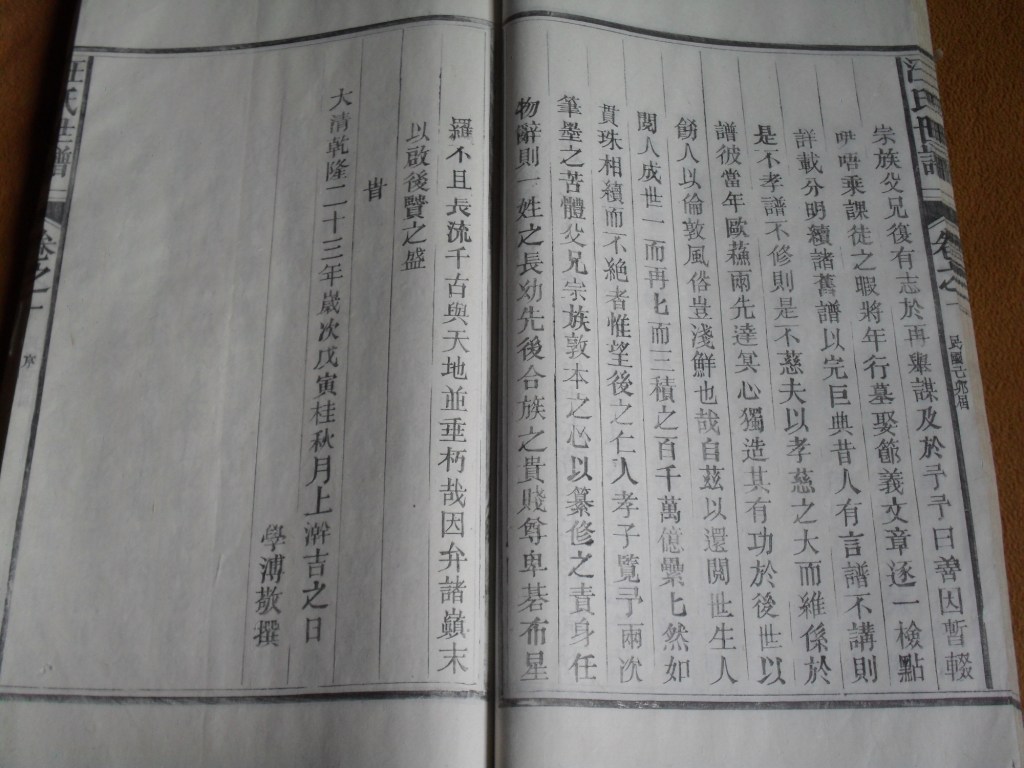 汪氏世譜
卷之一
民國己卯届
宗族父兄復有志於再舉謀及於予予曰善因暫輟
咿唔乘課徒之暇將年行墓娶節義文章逐一檢點
詳載分明續諸舊譜以完巨典昔人有言譜不講則
是不孝譜不修則是不慈夫以孝慈之大而維係於
譜彼當年歐蘓兩先達冥心獨造其有功於後世以
飭人以倫敦風俗豈淺鮮也哉自茲以還閱世生人
閱人成世一而再匕而三積之百千萬億纍匕然如
貫珠相續而不絕者惟望後之仁人孝子覽予兩次
筆墨之苦體父兄宗族敦本之心以纂修之責身任
物辭則一姓之長幼先後合族之貴賤尊卑碁布星
羅不且長流千古與天地並垂朽哉因弁諸巔末
以啟後賢之盛
旹
大清乾隆二十三年歲次戊寅桂秋月上澣吉之日
學溥敬撰
汪氏世譜
卷之一